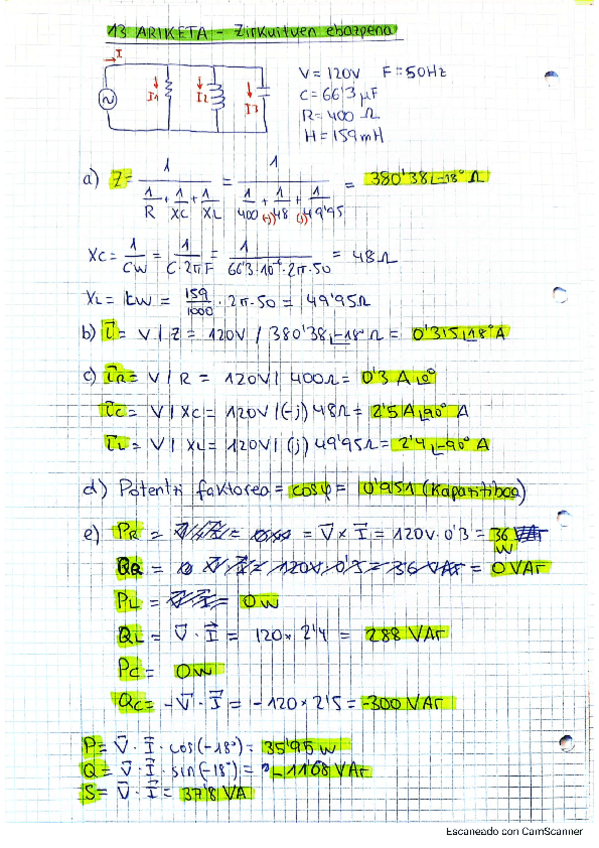 13 ARIKETA - Zirkuituen ebazpena
I
I1 I2 I3
V = 120V F = 50Hz
C = 66'3 µF
R = 400 Ω
H = 159mH
a) Z = 1 / (1/R + 1/XC + 1/XL) = 1 / (1/400 + 1/(-j)48 + 1/(j)49'95) = 380'38∟-18° Ω
XC = 1/CW = 1/C·2πF = 1/66'3·10⁻⁶·2π·50 = 48Ω
XL = LW = 159/1000 · 2π·50 = 49'95Ω
b) I = V / Z = 120V / 380'38∟-18° Ω = 0'315∟18° A
c) IR = V / R = 120V / 400Ω = 0'3 A∟0°
IC = V / XC = 120V / (-j) 48Ω = 2'5 A∟90° A
IL = V / XL = 120V / (j) 49'95Ω = 2'4∟-90° A
d) Potentzi faktorea = cosφ = 0'951 (Kapazitiboa)
e) PR = = V × I = 120V · 0'3 = 36
W
QR = = 0 VAr
PL = = 0 W
QL = V · I = 120 × 2'4 = 288 VAr
PC = 0 W
QC = -V · I = -120 × 2'5 = -300 VAr
P = V · I · cos(-18°) = 35'95 W
Q = V · I · sin(-18°) = -11'68 VAr
S = V · I = 37'8 VA
Escaneado con CamScanner